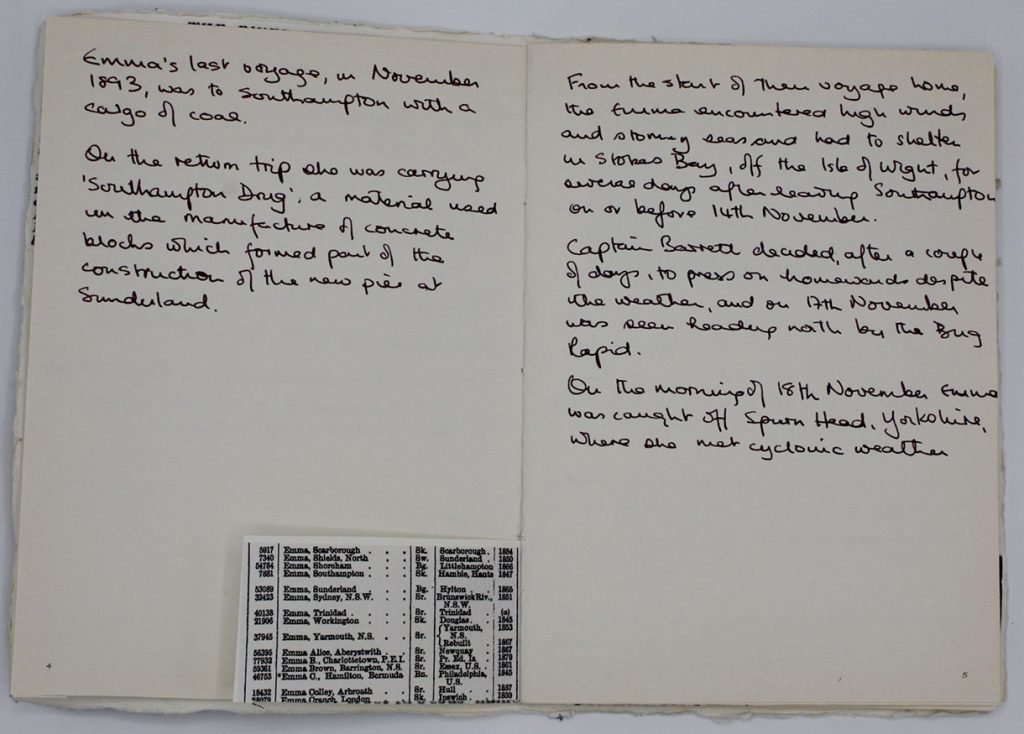 Emma's last voyage, in November
1893, was to Southampton with a
cargo of coal.
On the return trip she was carrying
'Southampton Drug', a material used
in the manufacture of concrete
blocks which formed part of the
construction of the new pier at
Sunderland.
5917 Emma, Scarborough . . . Sk. Scarborough . 1854
7340 Emma, Shields, North . . Sw. Sunderland . 1850
54784 Emma, Shoreham . . . Bg. Littlehampton 1866
7881 Emma, Southampton . . . Sk. Hamble, Hants 1847
53089 Emma, Sunderland . . Bg. Hylton . 1865
32423 Emma, Sydney, N.S.W. . . Sr. Brunswick Riv., 1851
N.S.W.
40138 Emma, Trinidad . . . . Sr. Trinidad . (a)
21906 Emma, Workington . . . Sk. Douglas . 1845
37945 Emma, Yarmouth, N.S. . . Sr. {Yarmouth, 1853
N.S.
Rebuilt . 1867
56395 Emma Alice, Aberystwith . . Sr. Newquay . 1867
77932 Emma B., Charlottetown, P.E.I. Sr. Pr. Ed. Is 1879
59361 Emma Brown, Barrington, N.S. Sr. Essex, U.S. . 1861
46753 *Emma C., Hamilton, Bermuda Bn. Philadelphia, 1845
U.S.
18432 Emma Colley, Arbroath . . Sr. Hull . 1857
Emma Cranch, London . . Sk. Ipswich . 1859
4
From the start of their voyage home,
the Emma encountered high winds
and stormy seas and had to shelter
in Stokes Bay, off the Isle of Wight, for
several days after leaving Southampton
on or before 14th November.
Captain Barrett decided, after a couple
of days, to press on homewards despite
the weather, and on 17th November
was seen heading north by the Brig
Rapid.
On the morning of 18th November Emma
was caught off Spurn Head, Yorkshire,
where she met cyclonic weather
5